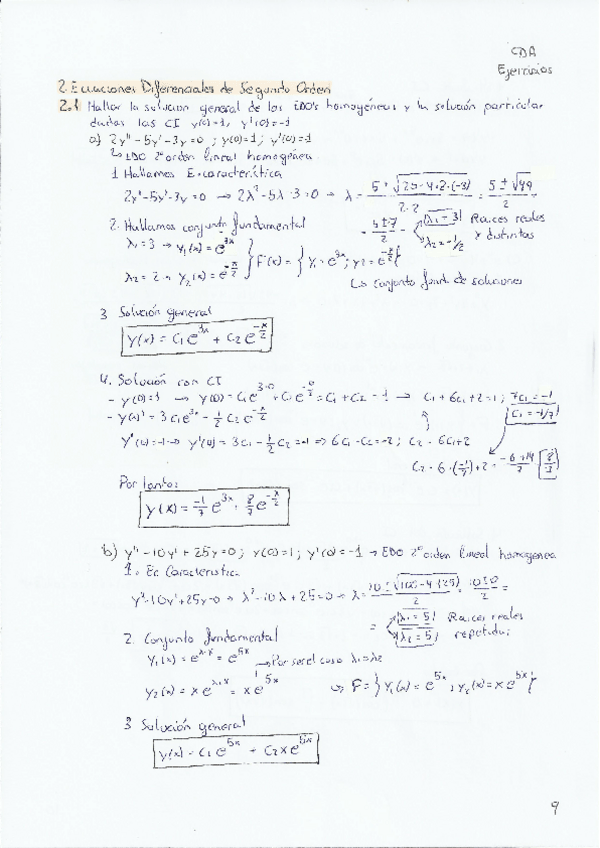 CDA
Ejercicios
2. Ecuaciones Diferenciales de Segundo Orden
2.1 Hallar la solucion general de las EDO's homogéneas y la solución particular
dadas las CI y(0)=1, y'(0)=-1
a) 2y''-5y'-3y=0 ; y(0)=1; y'(0)=-1
↳ EDO 2º orden lineal homogénea
1 Hallamos E característica
2y''-5y'-3y=0 → 2λ²-5λ-3=0 → λ = (5 ± √(25-4·2·(-3)))/(2·2) = (5 ± √49)/2
= (5±7)/2 → λ1=3 Raices reales
λ2=-1/2 y distintas
2. Hallamos conjunto fundamental
λ1=3 → y1(x)=e^{3x}
λ2=2 → y2(x)=e^{-x/2} } F(x)={y1=e^{3x}; y2=e^{-x/2}}
↳ Conjunto fund. de soluciones
3 Solución general
y(x) = C1 e^{3x} + C2 e^{-x/2}
4. Solución con CI
- y(0)=1 → y(0)= C1e^{3·0}+C2e^{-0/2}=C1+C2=1 → C1+6C1+2=1; 7C1=-1
C1=-1/7
- y(x)'=3C1e^{3x}-1/2 C2 e^{-x/2}
y'(0)=-1 → y'(0)=3C1-1/2 C2=-1 ⇒ 6C1-C2=-2; C2=6C1+2
C2=6·(-1/7)+2=(-6+14)/7 = 8/7
Por tanto:
y(x) = -1/7 e^{3x} + 8/7 e^{-x/2}
b) y''-10y'+25y=0; y(0)=1; y'(0)=-1 → EDO 2º orden lineal homogenea
1. Ec Caracteristica
y''-10y'+25y=0 → λ²-10λ+25=0 → λ=(10±√(100-4(25)))/2 = (10±0)/2 =
= λ1=5 Raices reales
λ2=5 repetidas
2. Conjunto fundamental
y1(x)=e^{λ1x}=e^{5x}
→ Por ser el caso λ1=λ2
y2(x)=xe^{λ1x}=xe^{5x} ↳ F={y1(x)=e^{5x}; y2(x)=xe^{5x}}
3 Solución general
y(x)=C1e^{5x}+C2xe^{5x}
9